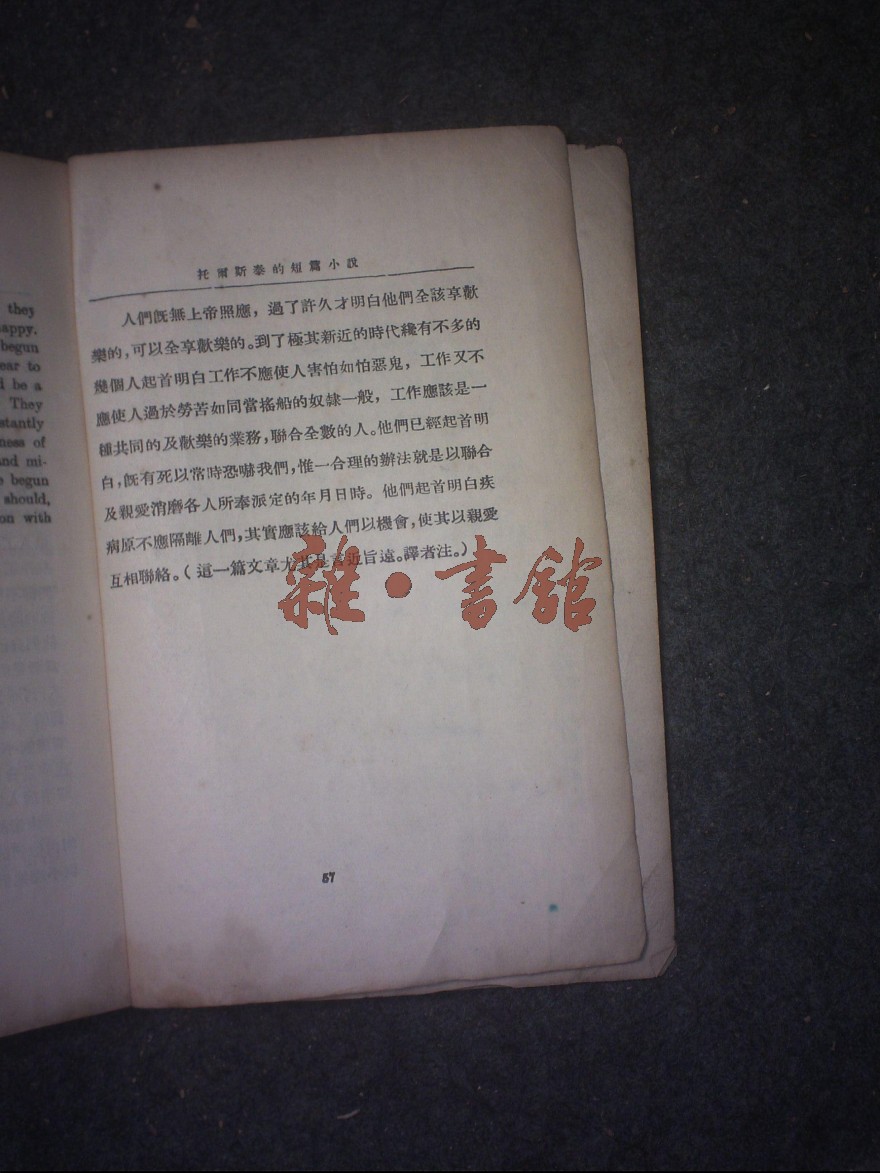 they
happy.
begun
ear to
d be a
They
stantly
ness of
and mi-
begun
should,
on with
托爾斯泰的短篇小說
人們旣無上帝照應，過了許久才明白他們全該享歡
樂的，可以全享歡樂的。到了極其新近的時代纔有不多的
幾個人起首明白工作不應使人害怕如怕惡鬼，工作又不
應使人過於勞苦如同當搖船的奴隸一般，工作應該是一
種共同的及歡樂的業務，聯合全數的人。他們已經起首明
白，旣有死以常時恐嚇我們，惟一合理的辦法就是以聯合
及親愛消磨各人所奉派定的年月日時。他們起首明白疾
病原不應隔離人們，其實應該給人們以機會，使其以親愛
互相聯絡。（這一篇文章尤其是言近旨遠。譯者注。）
雜·書館
57